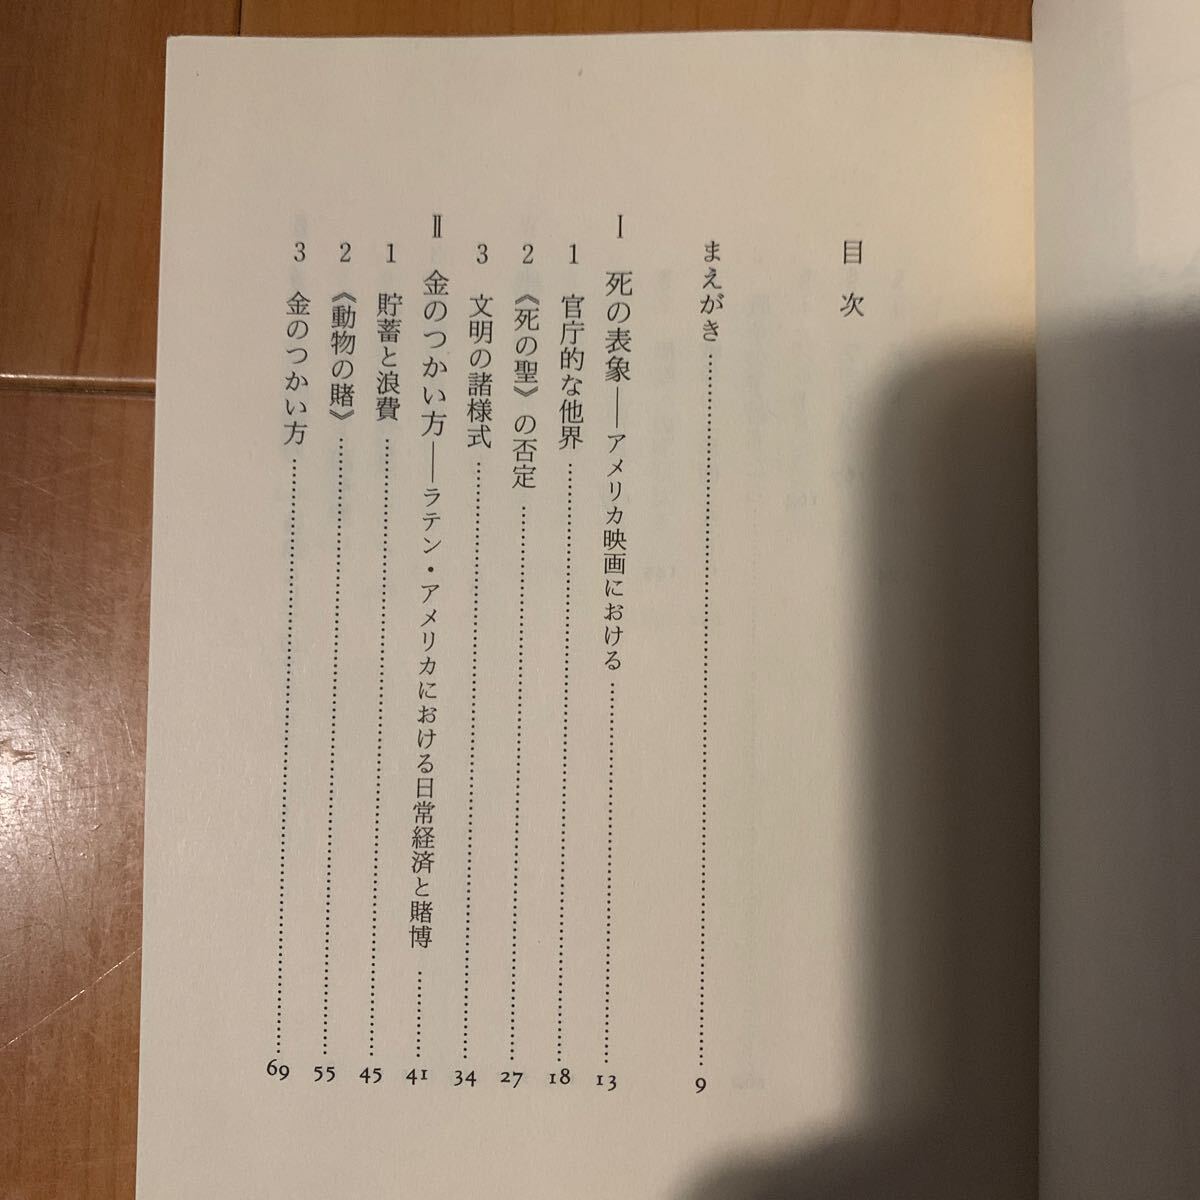 目次
まえがき……9
Ⅰ 死の表象——アメリカ映画における……13
1 官庁的な他界……18
2 《死の聖》の否定……27
3 文明の諸様式……34
Ⅱ 金のつかい方——ラテン・アメリカにおける日常経済と賭博……41
1 貯蓄と浪費……45
2 《動物の賭》……55
3 金のつかい方……69